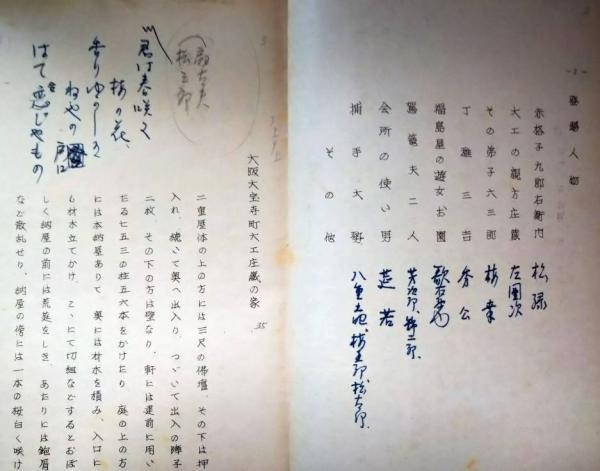 - 2 -
登場人物
赤格子九郎右衛門　松緑
大工の親方庄蔵　左團次
その弟子六三郎　梅幸
丁稚三吉
福島屋の遊女お園
駕籠夫二人
会所の使い男　莚若
捕手大勢
その他
3
君は春咲く
梅の花、
香りゆかしき
ねやの
はて恋じやもの
大阪大宝寺町大工庄蔵の家
35
二重屋体の上の方には三尺の佛壇、その下は押
入れ、續いて奥へ出入り、つゞいて出入の障子
二枚、その下の方は壁なり、軒には建前に用い
たる七五三の柱五六本をかけたり、庭の上の方
には本納屋ありて、奥には材木を積み、入口に
も材木立てかけ、こゝにて切組などするとおぼ
しく納屋の前には荒庭をしき、あたりには鉋屑
など散乱せり、納屋の傍には一本の桜白く咲け